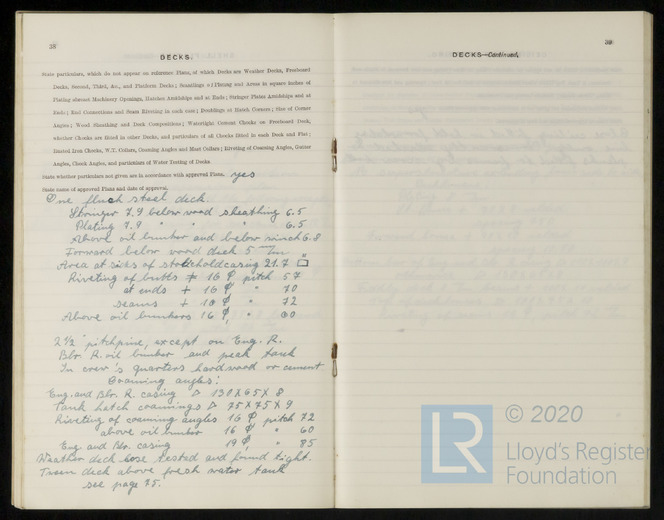 38
DECKS.
State particulars, which do not appear on reference Plans, of which Decks are Weather Decks, Freeboard
Decks, Second, Third, &c., and Platform Decks; Scantlings of Plating and Areas in square inches of
Plating abreast Machinery Openings, Hatches Amidships and at Ends; Stringer Plates Amidships and at
Ends; End Connections and Seam Riveting in each case; Doublings at Hatch Corners; Size of Corner
Angles; Wood Sheathing and Deck Compositions; Watertight Cement Chocks on Freeboard Deck,
whether Chocks are fitted in other Decks, and particulars of all Chocks fitted in each Deck and Flat;
Riveted Iron Chocks, W.T. Collars, Coaming Angles and Mast Collars; Riveting of Coaming Angles, Gutter
Angles, Chock Angles, and particulars of Water Testing of Decks
State whether particulars not given are in accordance with approved Plans. yes
State name of approved Plans and date of approval.
One flush steel deck.
Stringer 7.9 below wood sheathing 6.5
Plating 7.9 " " " 6.5
Above oil bunker and below winch 6.8
Forward below wood deck 5 m/m
Area at sides of stokehold casing 21.7 □"
Riveting of butts 16 φ, pitch 57
at ends 16 φ, " 70
seams 16 φ, " 72
Above oil bunkers 16 φ, " 60
2½" pitchpine, except on Eng. R.
Blr. R. oil bunker and peak tank
In crew's quarters hardwood or cement
Coaming angles:
Eng. and Blr. R. casing 130 X 65 X 8
Tank hatch coamings 75 X 75 X 9
Riveting of coaming angles 16 φ, pitch 72
above oil bunker 16 φ, " 60
Eng. and Blr. casing 19 φ, " 85
Weather deck hose tested and found tight.
Tween deck above fresh water tank
see page 25.
39
DECKS—Continued.
LR
© 2020
Lloyd's Register
Foundation